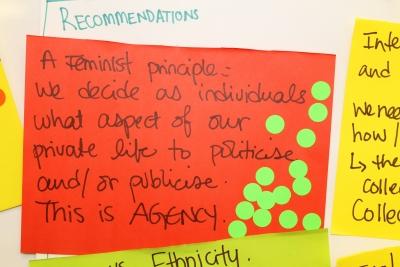 RECOMMENDATIONS
A Feminist principle:
we decide as individuals
what aspect of our
private life to politicise
and/or publicise.
This is AGENCY.
Ethnicity.
Inte
and
we nee
how /
↳ the
colle
Collec